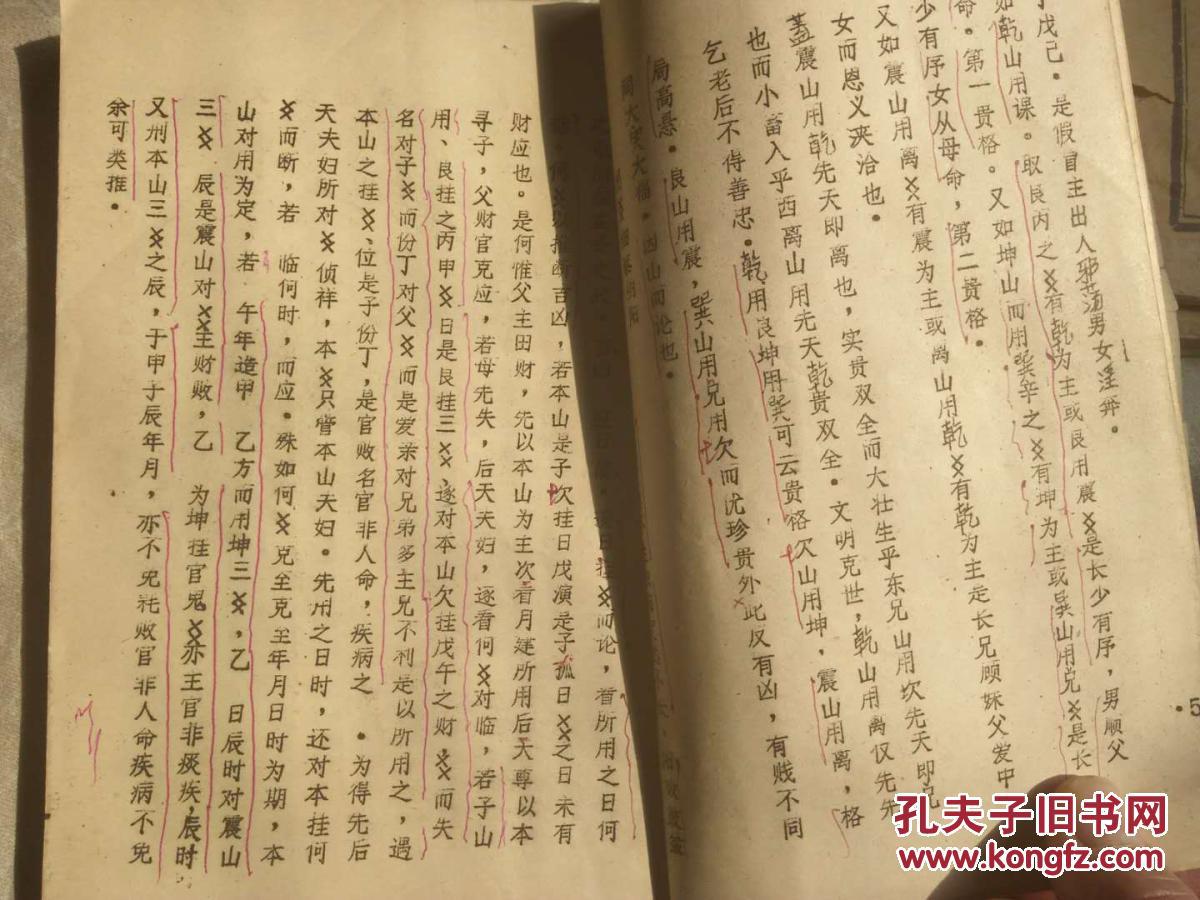 戊己。是假自主出人邪荡男女淫奔。
如乾山用课。取艮丙之爻有乾为主或艮用震爻是长少有序，男顺父
命。第一贵格。又如坤山而用巽辛之爻有坤为主或巽山用兑爻是长
少有序女从母命，第二贵格。
又如震山用离爻有震为主或离山用乾爻有乾为主是长兄顾妹父爱中
女而恩义浃洽也。
盖震山用乾先天即离也，实贵双全而大壮生乎东兄山用坎先天即兄
也而小畜入乎西离山用先天乾贵双全。文明克世，乾山用离仅先先
乞老后不得善忠。乾用艮坤用巽可云贵格欠山用坤，震山用离，格
局高悬。艮山用震，巽山用兑用欠而优珍贵外此仅有凶，有贱不同
凶山而论也。
爻而论，看所用之日何
推断吉凶，若本山是子欠挂日戊演是子孤日爻之日未有
财应也。是何惟父主田财，先以本山为主次看月建所用后天尊以本
寻子，父财官克应，若母先失，后天夫妇，逐看何爻对临，若子山
用、艮挂之丙甲爻日是艮挂三爻、逐对本山欠挂戊午之财，爻而失
名对子爻而份丁对父爻而是爱亲对兄弟多主兄不利是以所用之，遇
本山之挂爻、位是子份丁，是官败名官非人命，疾病之 。为得先后
天夫妇所对爻侦祥，本爻只管本山夫妇。先用之日时，还对本挂何
爻而断，若 临何时，而应。殊如何爻克至克至年月日时为期，本
山对用为定，若 午年造甲 乙方而用坤三爻，乙 日辰时对震山
三爻 辰是震山对爻主财败，乙 为坤挂官鬼爻亦王官非痰疾，辰时
又刑本山三爻之辰，于甲子辰年月，亦不免耗败官非人命疾病不免
余可类推。
孔夫子旧书网
www.kongfz.com